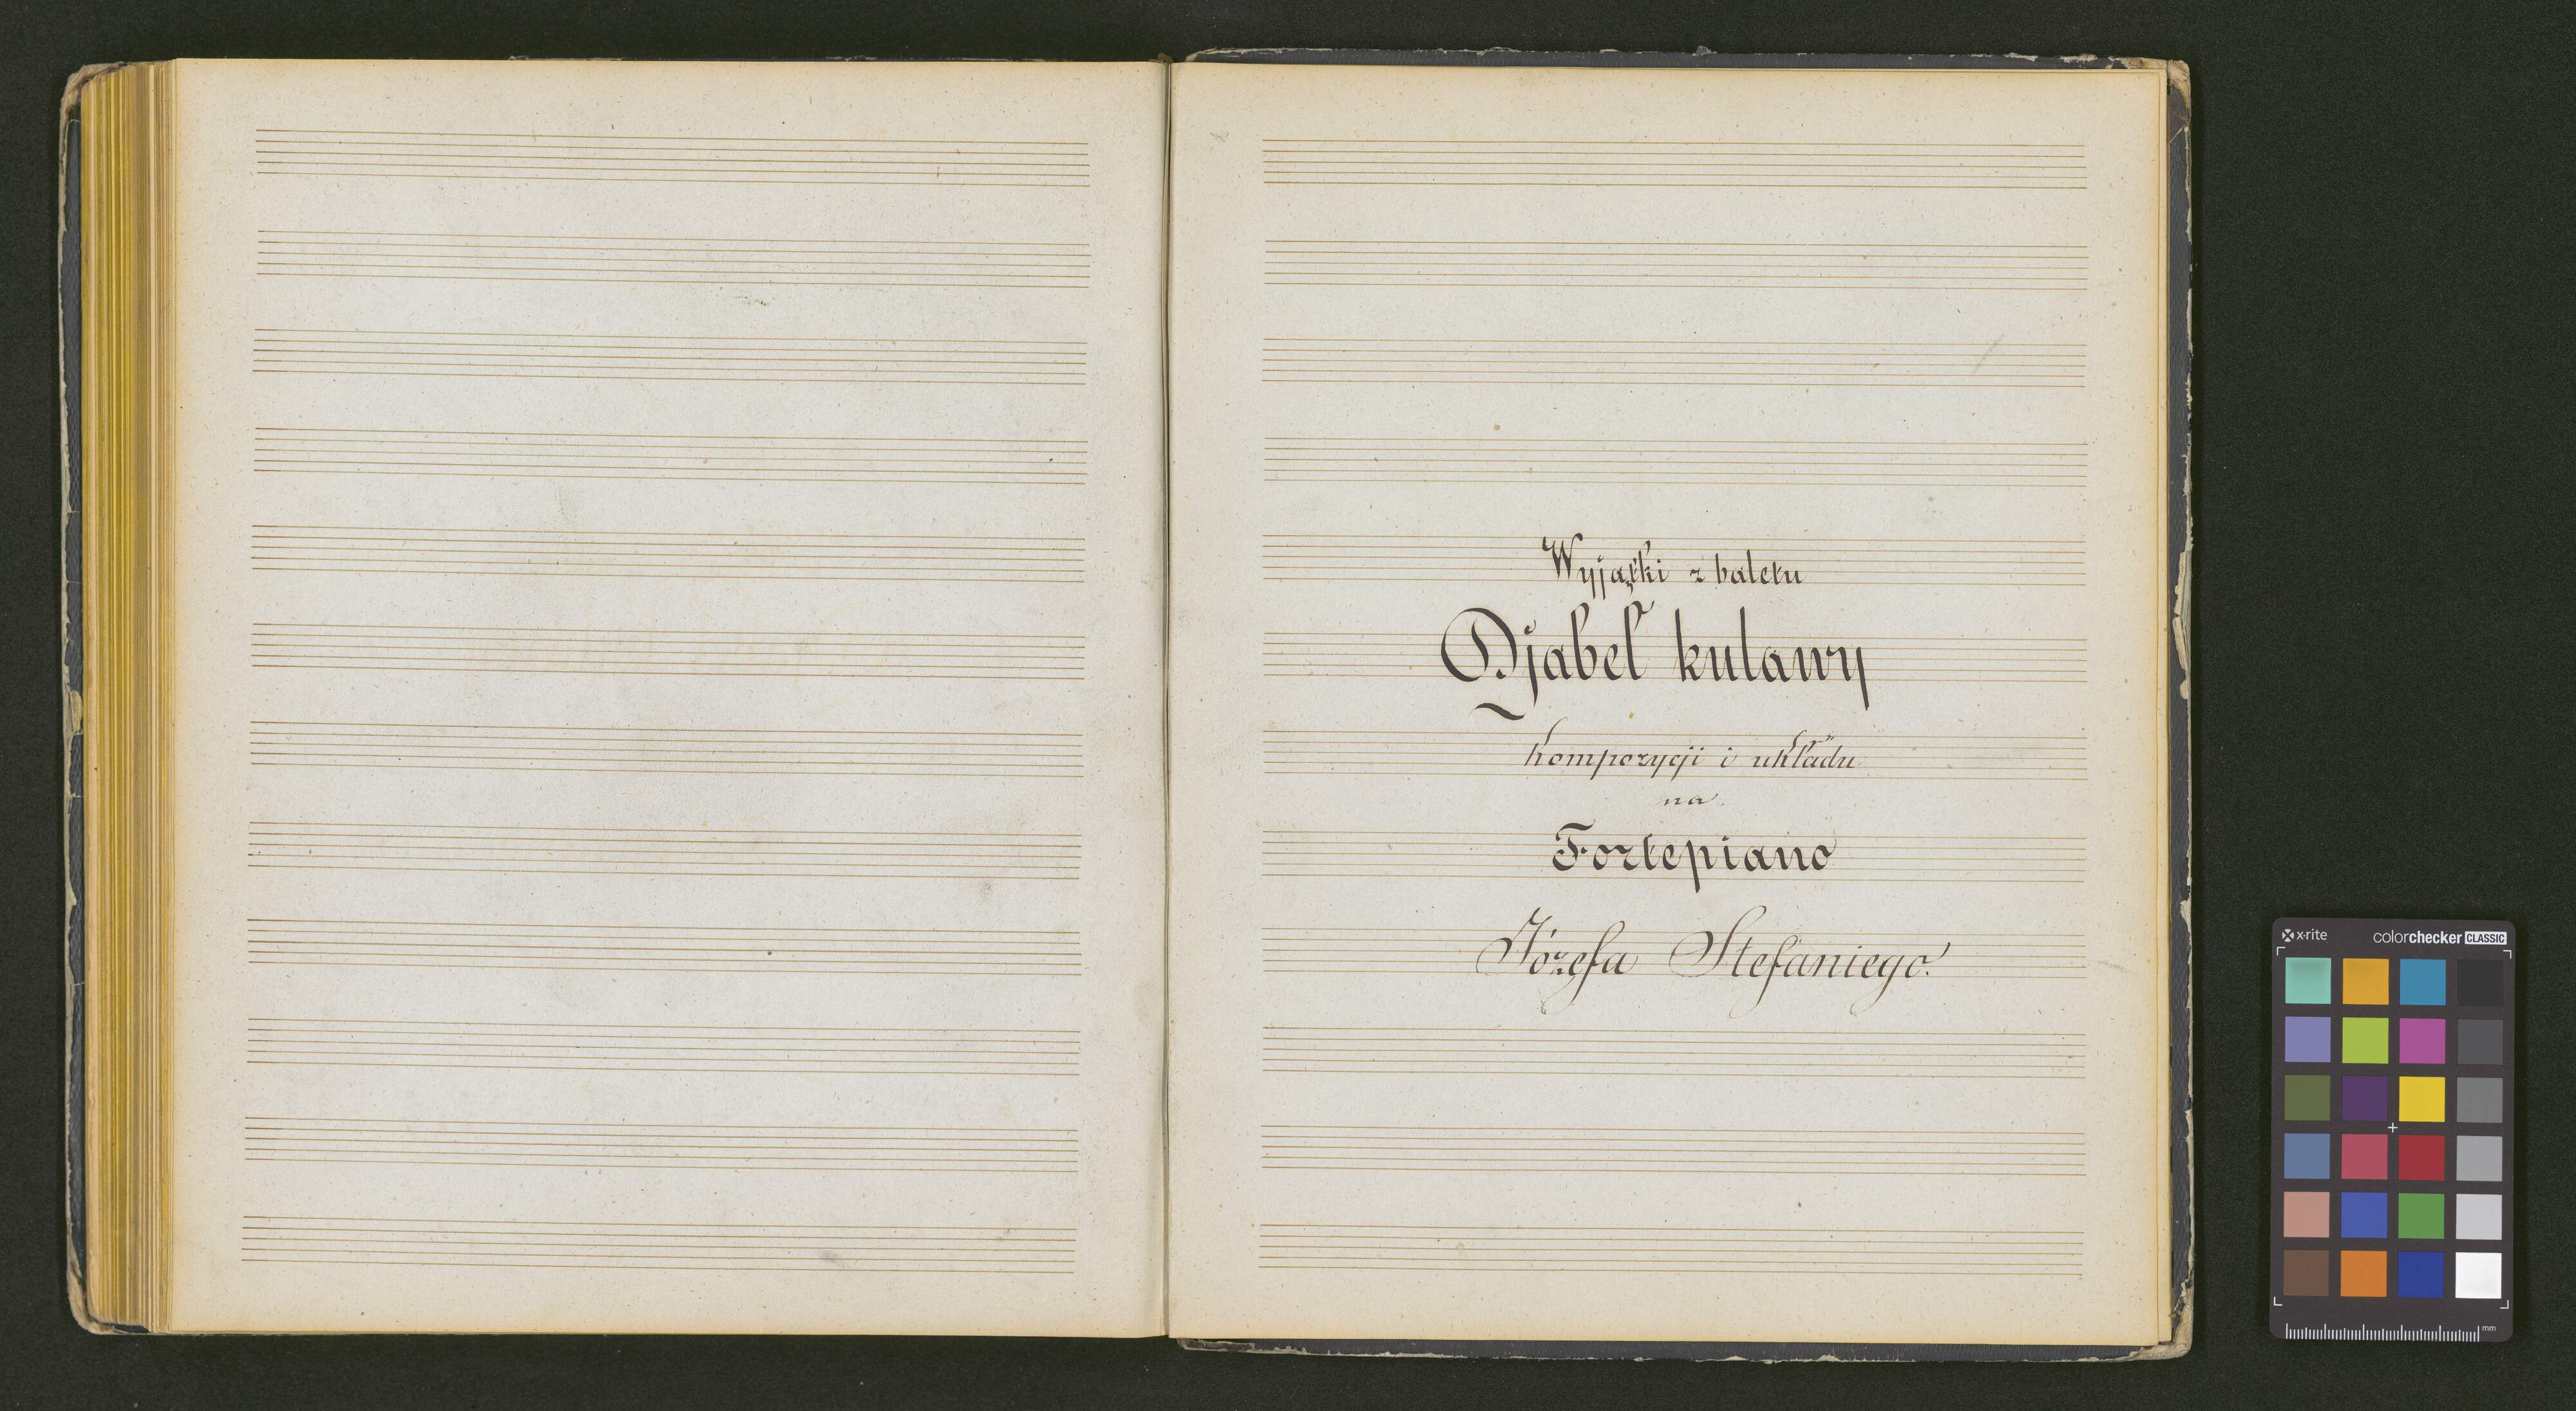 Wyjątki z baletu
Djabeł kulawy
kompozycji i układu
na
Fortepiano
Józefa Stefaniego.
x·rite colorchecker CLASSIC
mm